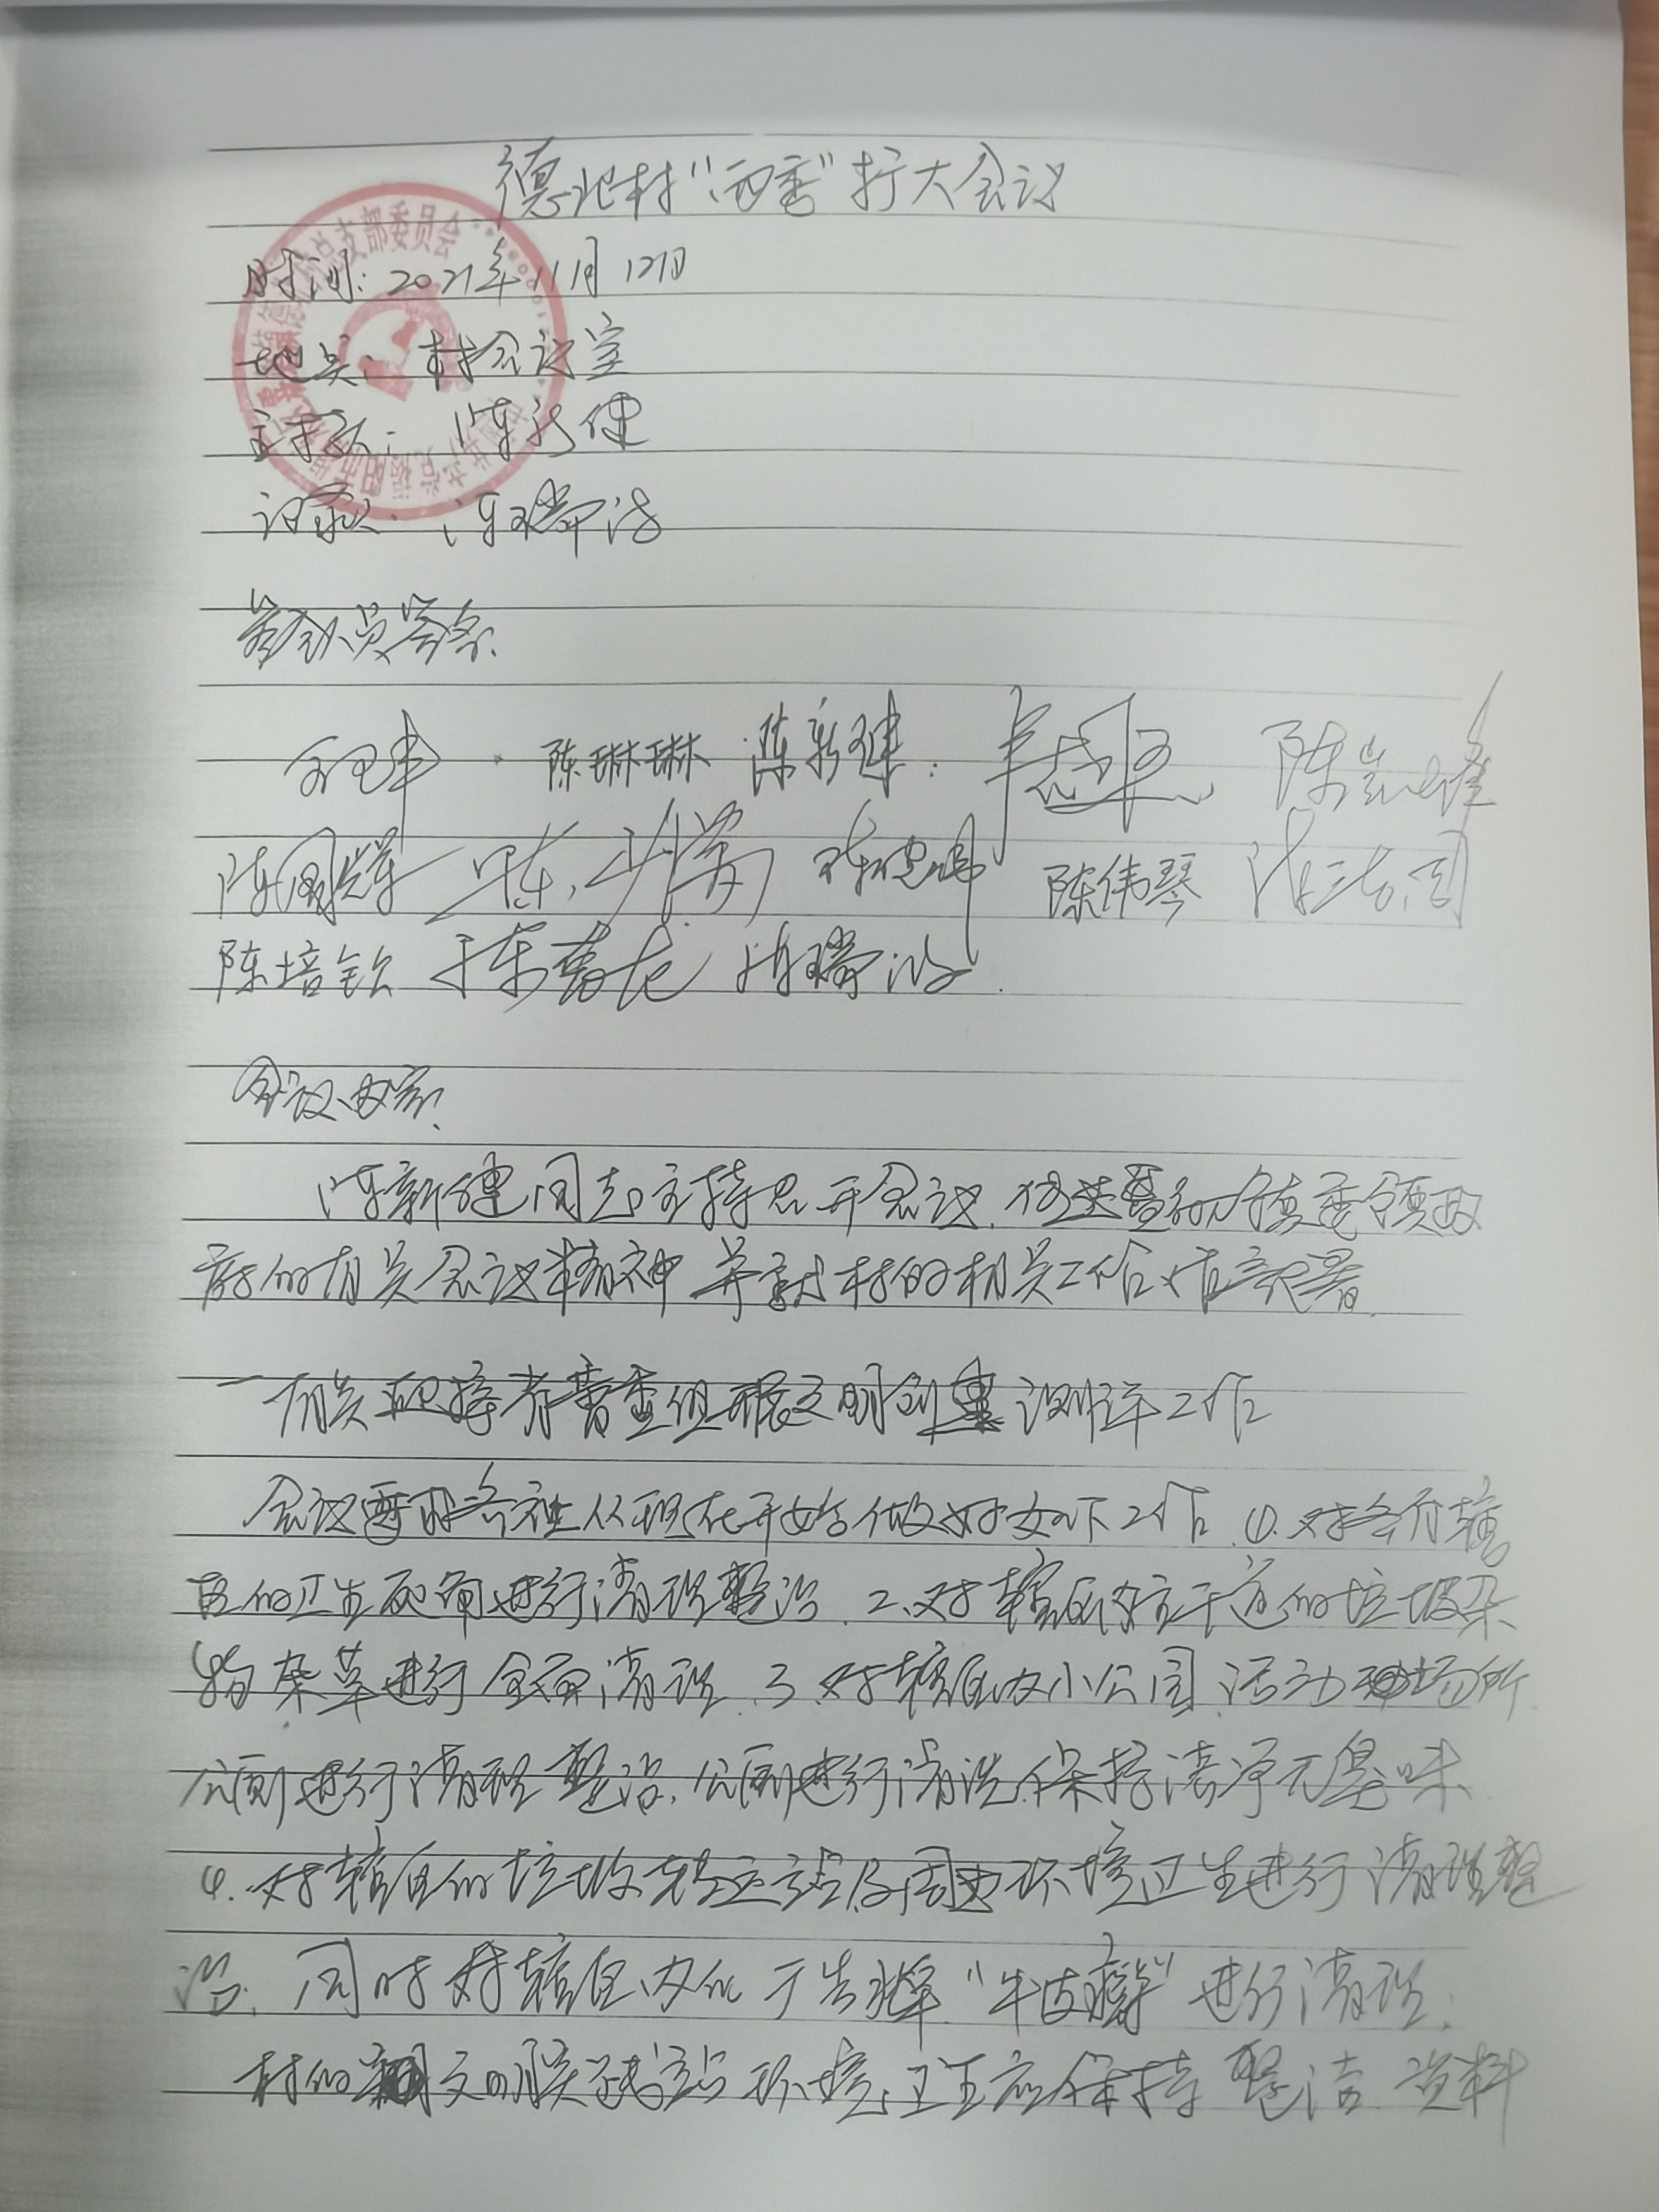 德北村“两委”扩大会议
时间：2021年11月12日
地点：村会议室
主持人：陈新健
记录人：陈瑞洪
总支部委员会
参会人员签名：
陈琳琳 陈新建 陈岚峰
陈凤辉 陈少芳 陈伟琴
陈培钦 陈春龙 陈瑞洪
会议内容：
陈新健同志主持召开会议，传达镇委镇政
府的有关会议精神，并就村的相关工作作出部署
一、有关迎接省督查组开展文明创建测评工作
会议要求各社从现在开始做好如下工作 ①、对各自辖
区的卫生死角进行清理整治 2、对辖区内主干道的垃圾杂
物杂草进行全面清理 3、对辖区内小公园、活动场所
公厕进行清理整治，公厕进行清洗，保持洁净无臭味
4、对辖区的垃圾转运站及周边环境卫生进行清理整
治，同时对辖区内的广告牌“牛皮癣”进行清理；
村的文明实践站环境卫生应保持整洁，资料